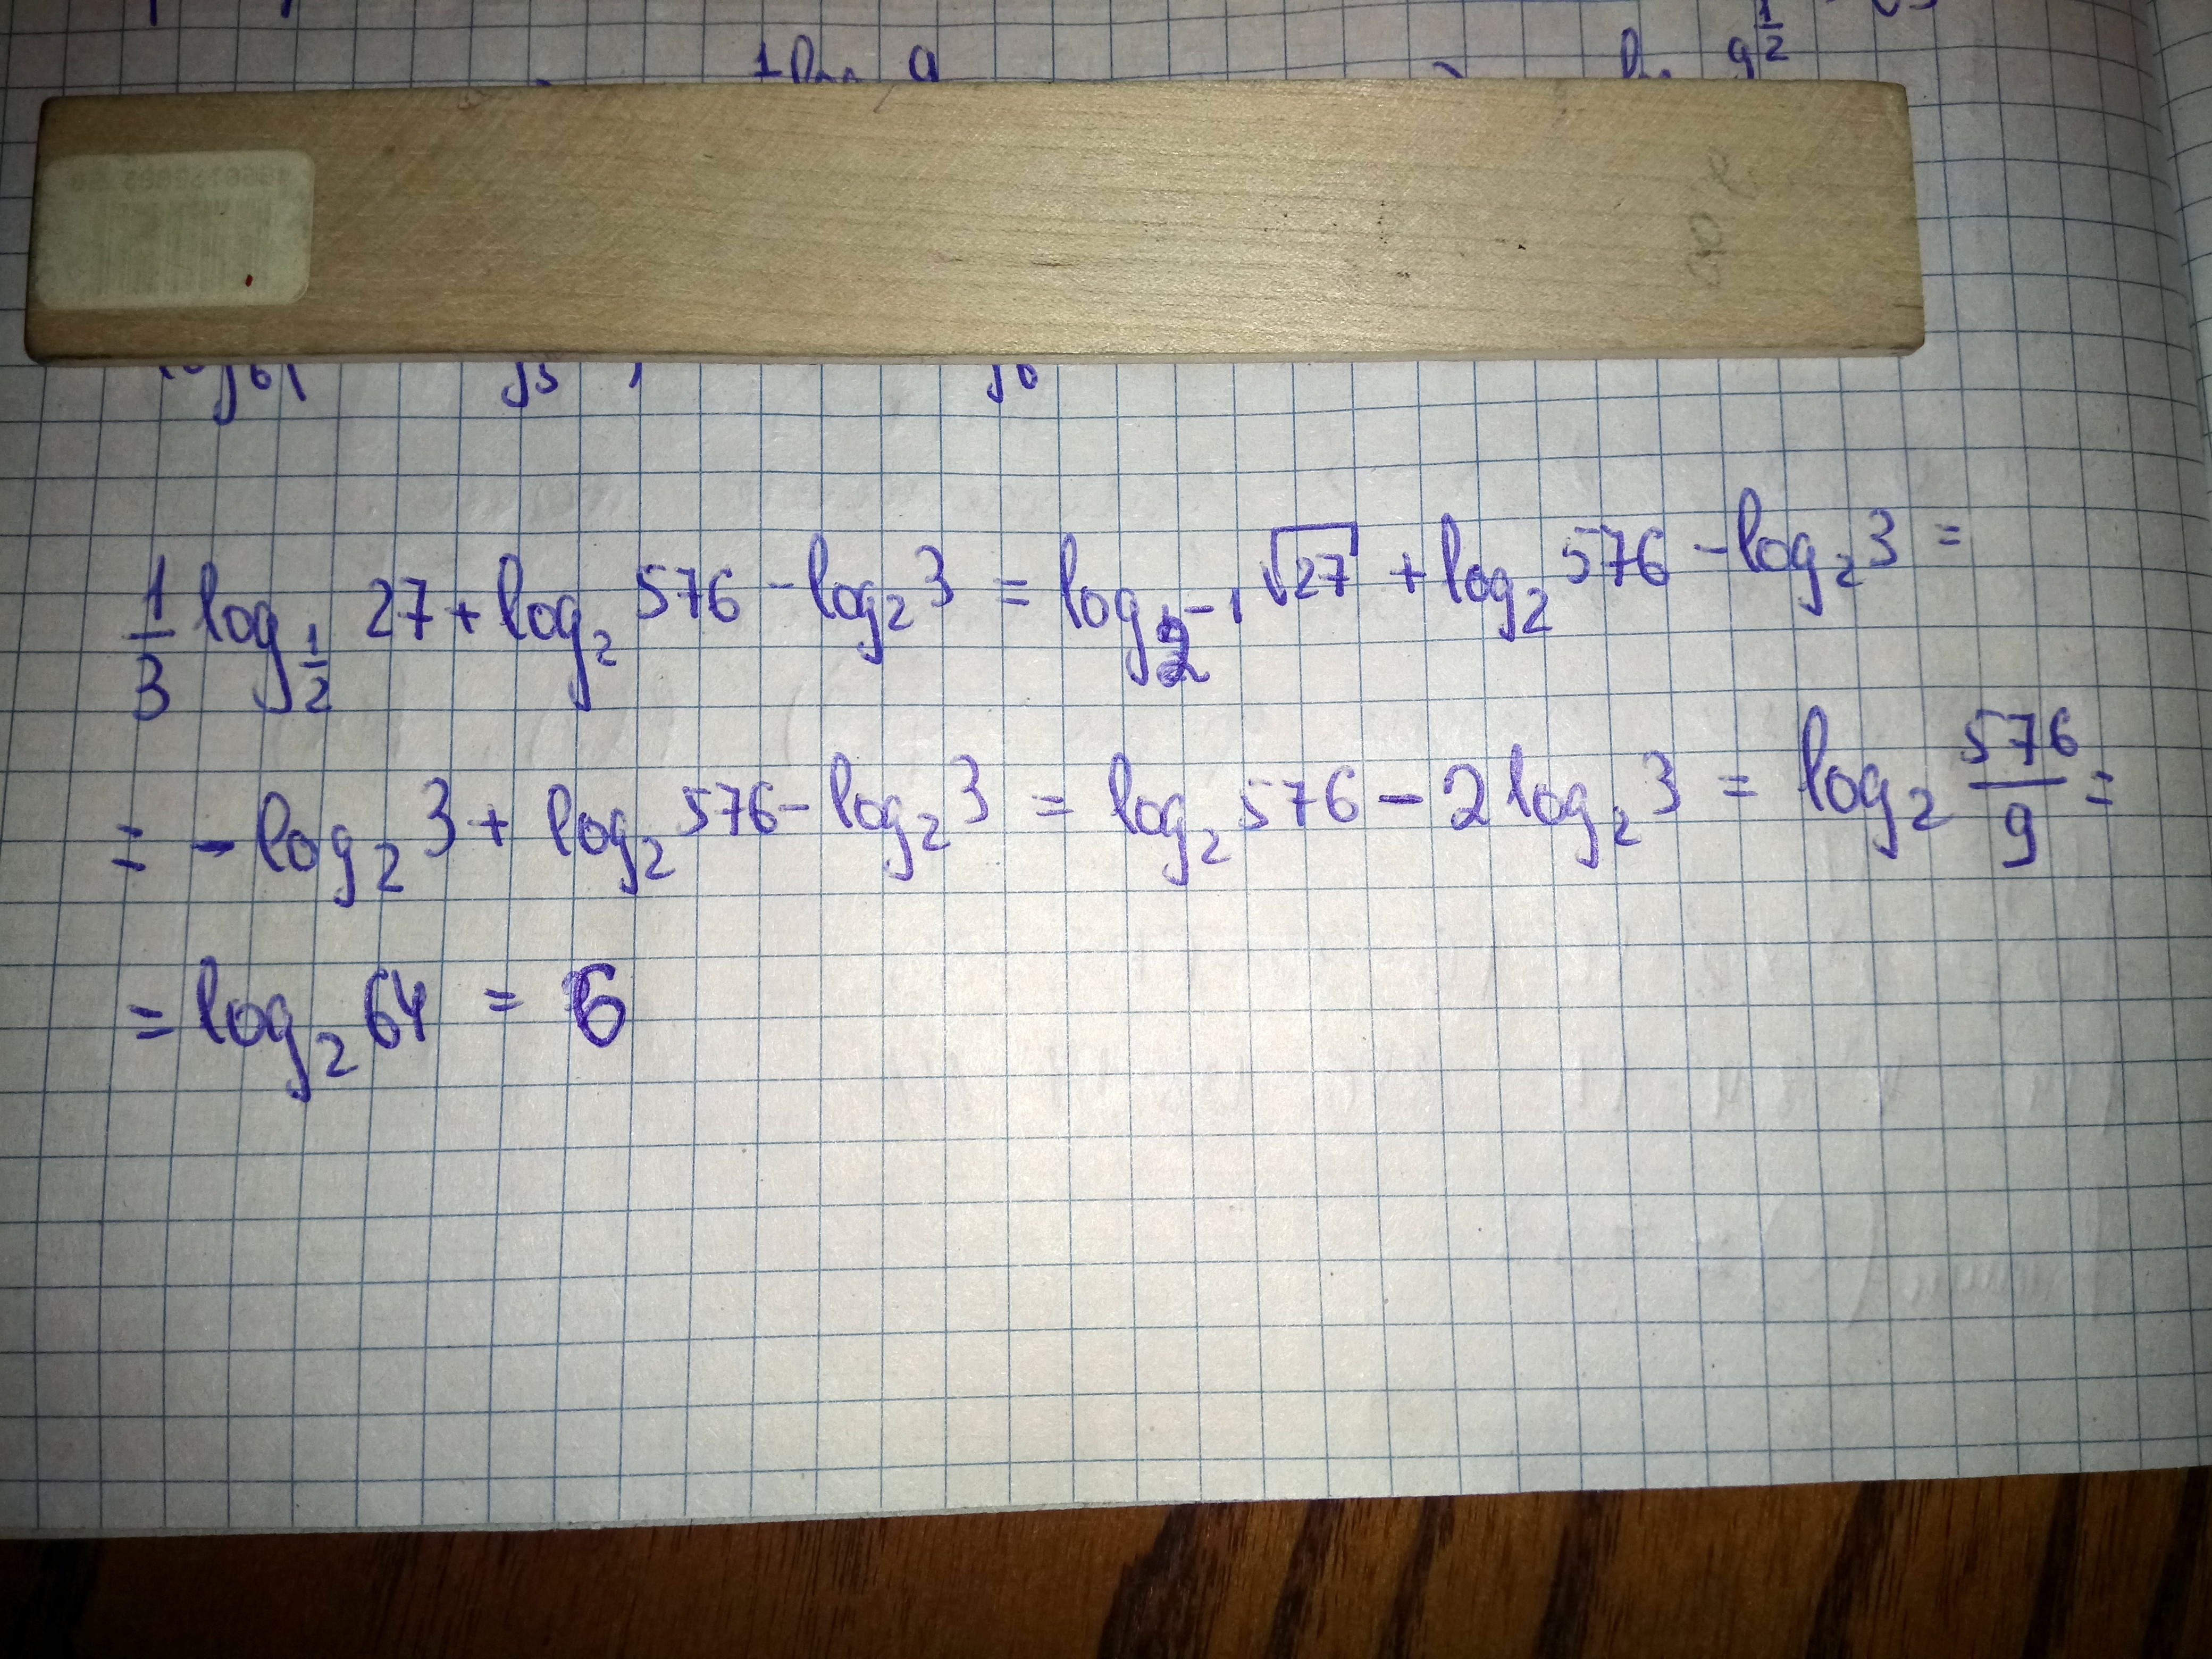 1/3 log_{1/2} 27 + log_2 576 - log_2 3 = log_{2^{-1}} √27 + log_2 576 - log_2 3 =
= - log_2 3 + log_2 576 - log_2 3 = log_2 576 - 2 log_2 3 = log_2 576/9 =
= log_2 64 = 6